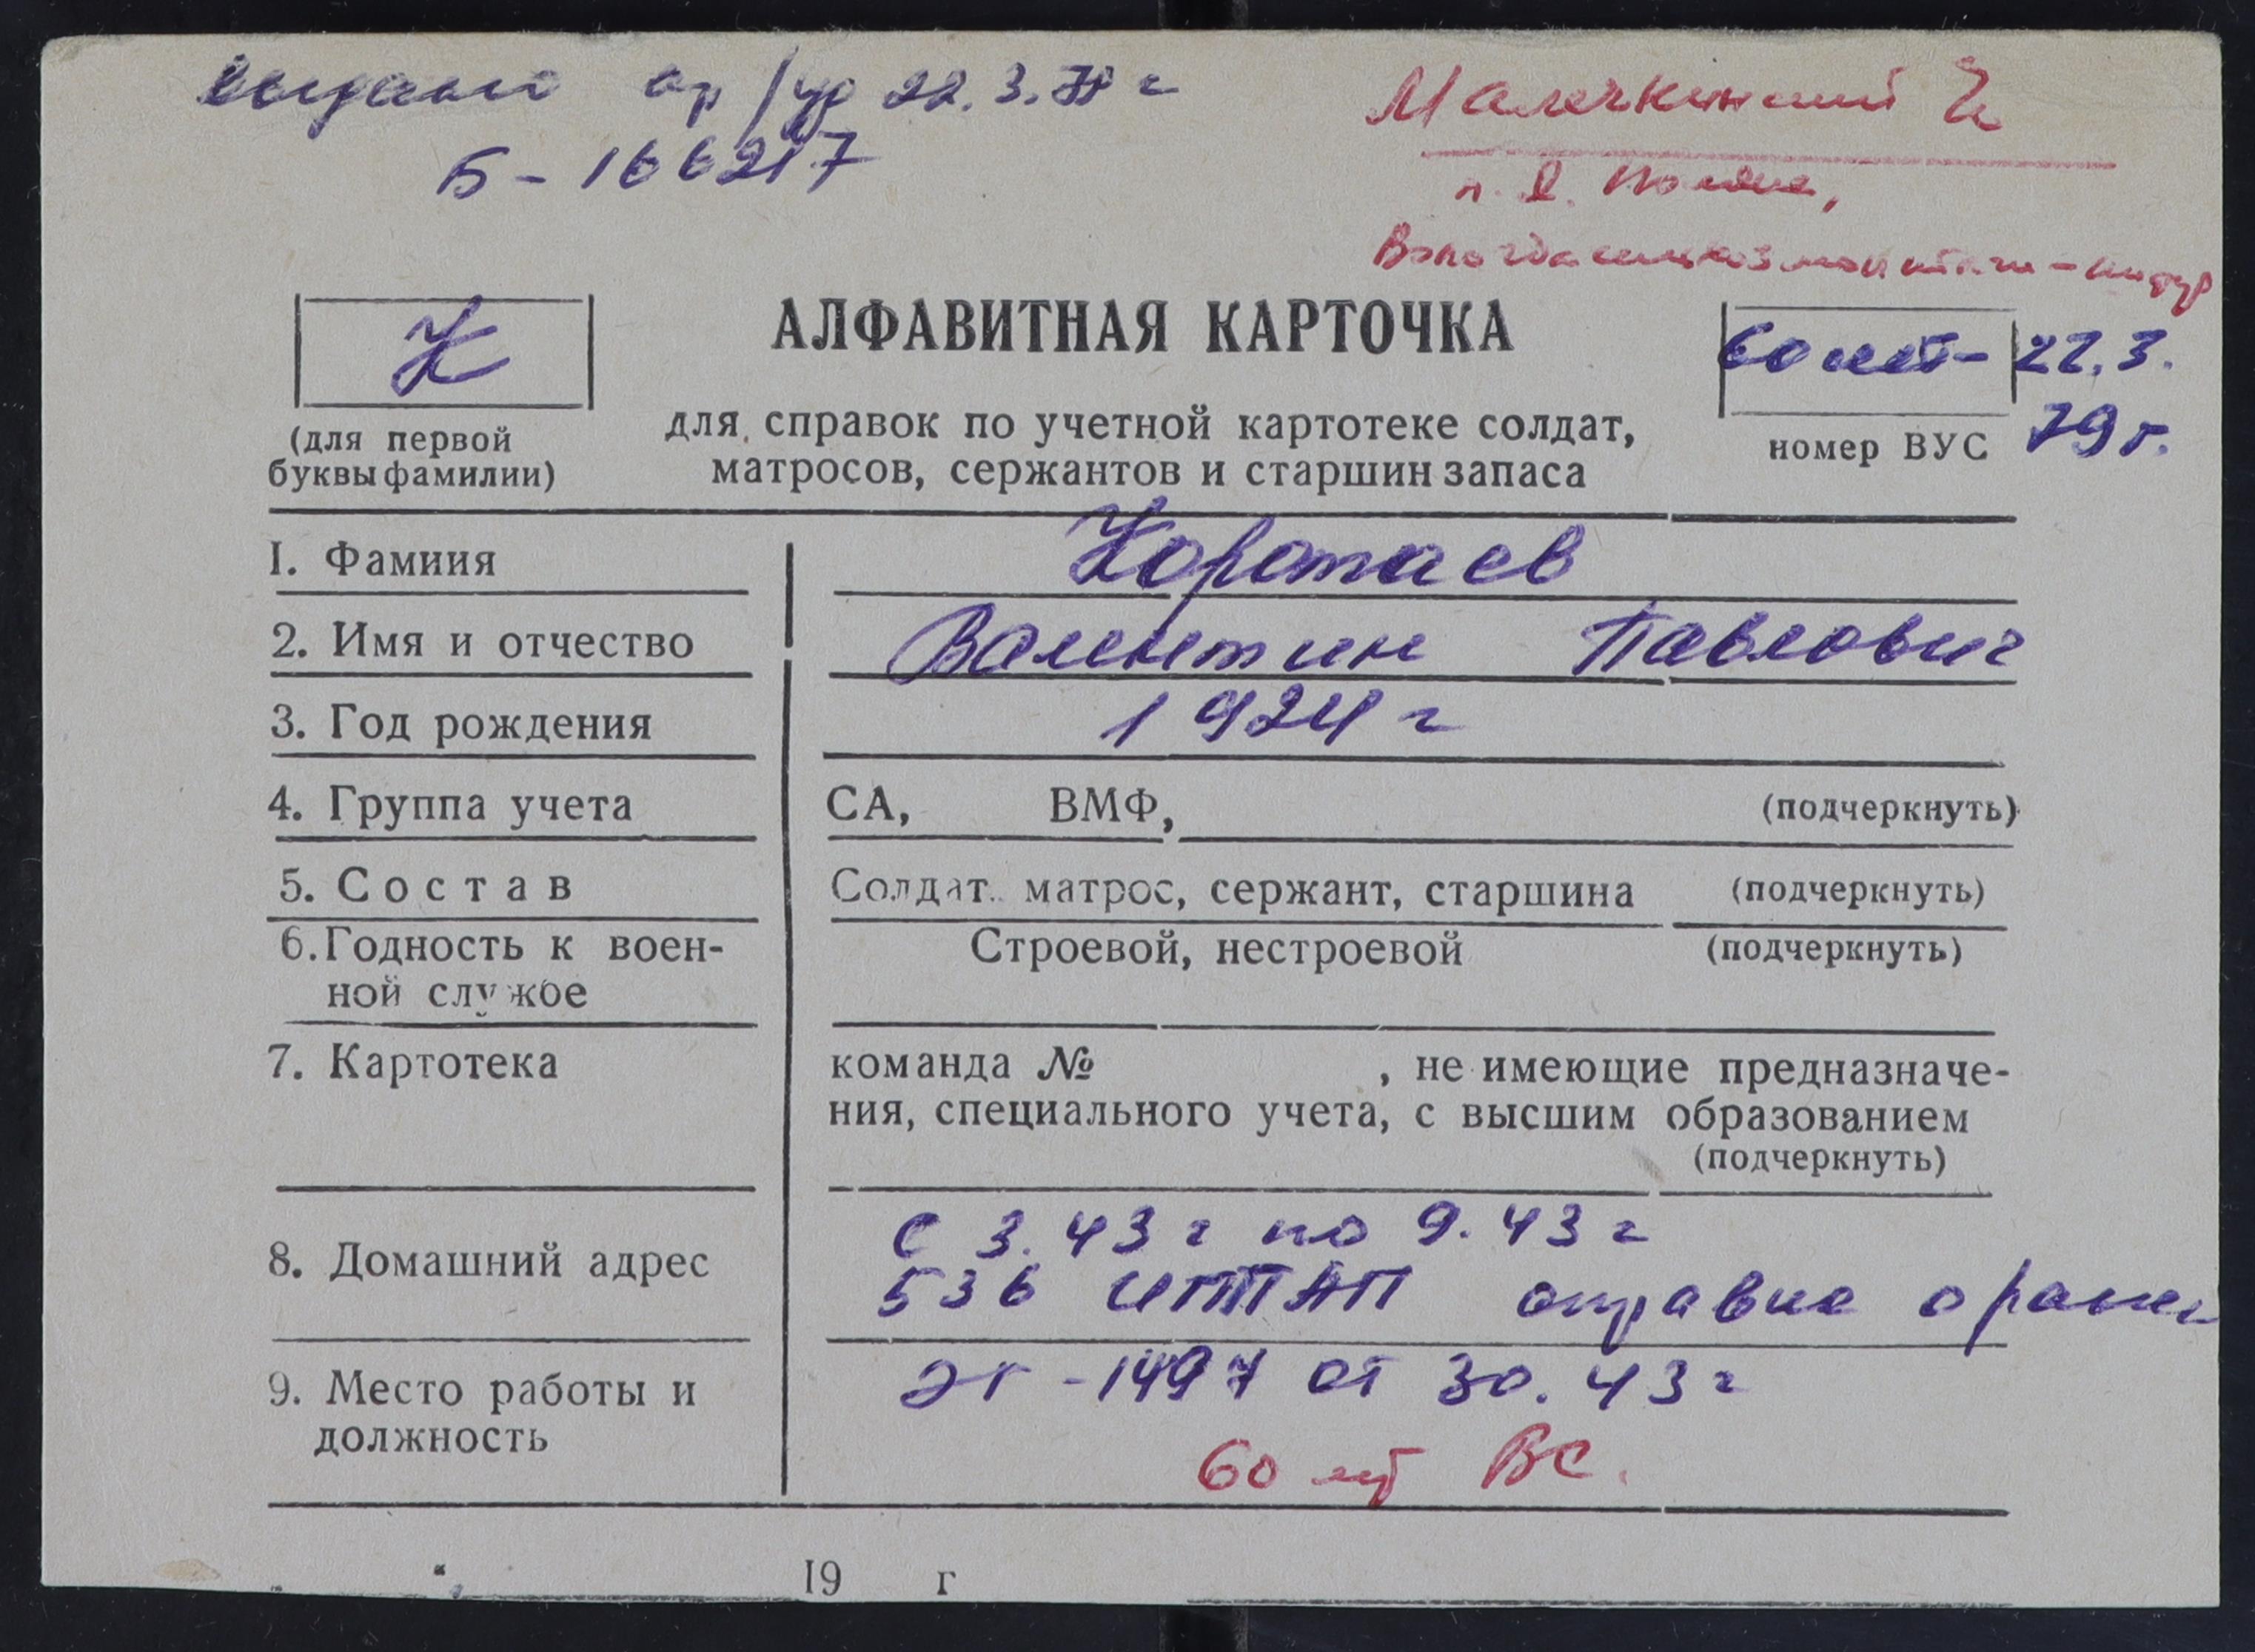 выдано 22.3.79 г
Б-166217
Малечкинский
п. Я. Поляна,
АЛФАВИТНАЯ КАРТОЧКА
К
60 лет- 22.3.
79 г.
(для первой
буквы фамилии)
для справок по учетной картотеке солдат,
матросов, сержантов и старшин запаса
номер ВУС
1. Фамиия Коротаев
2. Имя и отчество Валентин Павлович
3. Год рождения 1924 г
4. Группа учета СА, ВМФ, (подчеркнуть)
5. Состав Солдат. матрос, сержант, старшина (подчеркнуть)
6. Годность к воен-
ной службе Строевой, нестроевой (подчеркнуть)
7. Картотека команда № , не имеющие предназначе-
ния, специального учета, с высшим образованием
(подчеркнуть)
8. Домашний адрес с 3.43 г по 9.43 г
536 ИПТАП справка о ранен
9. Место работы и
должность ЭГ-1497 от 30.43 г
60 лет ВС.
19 г